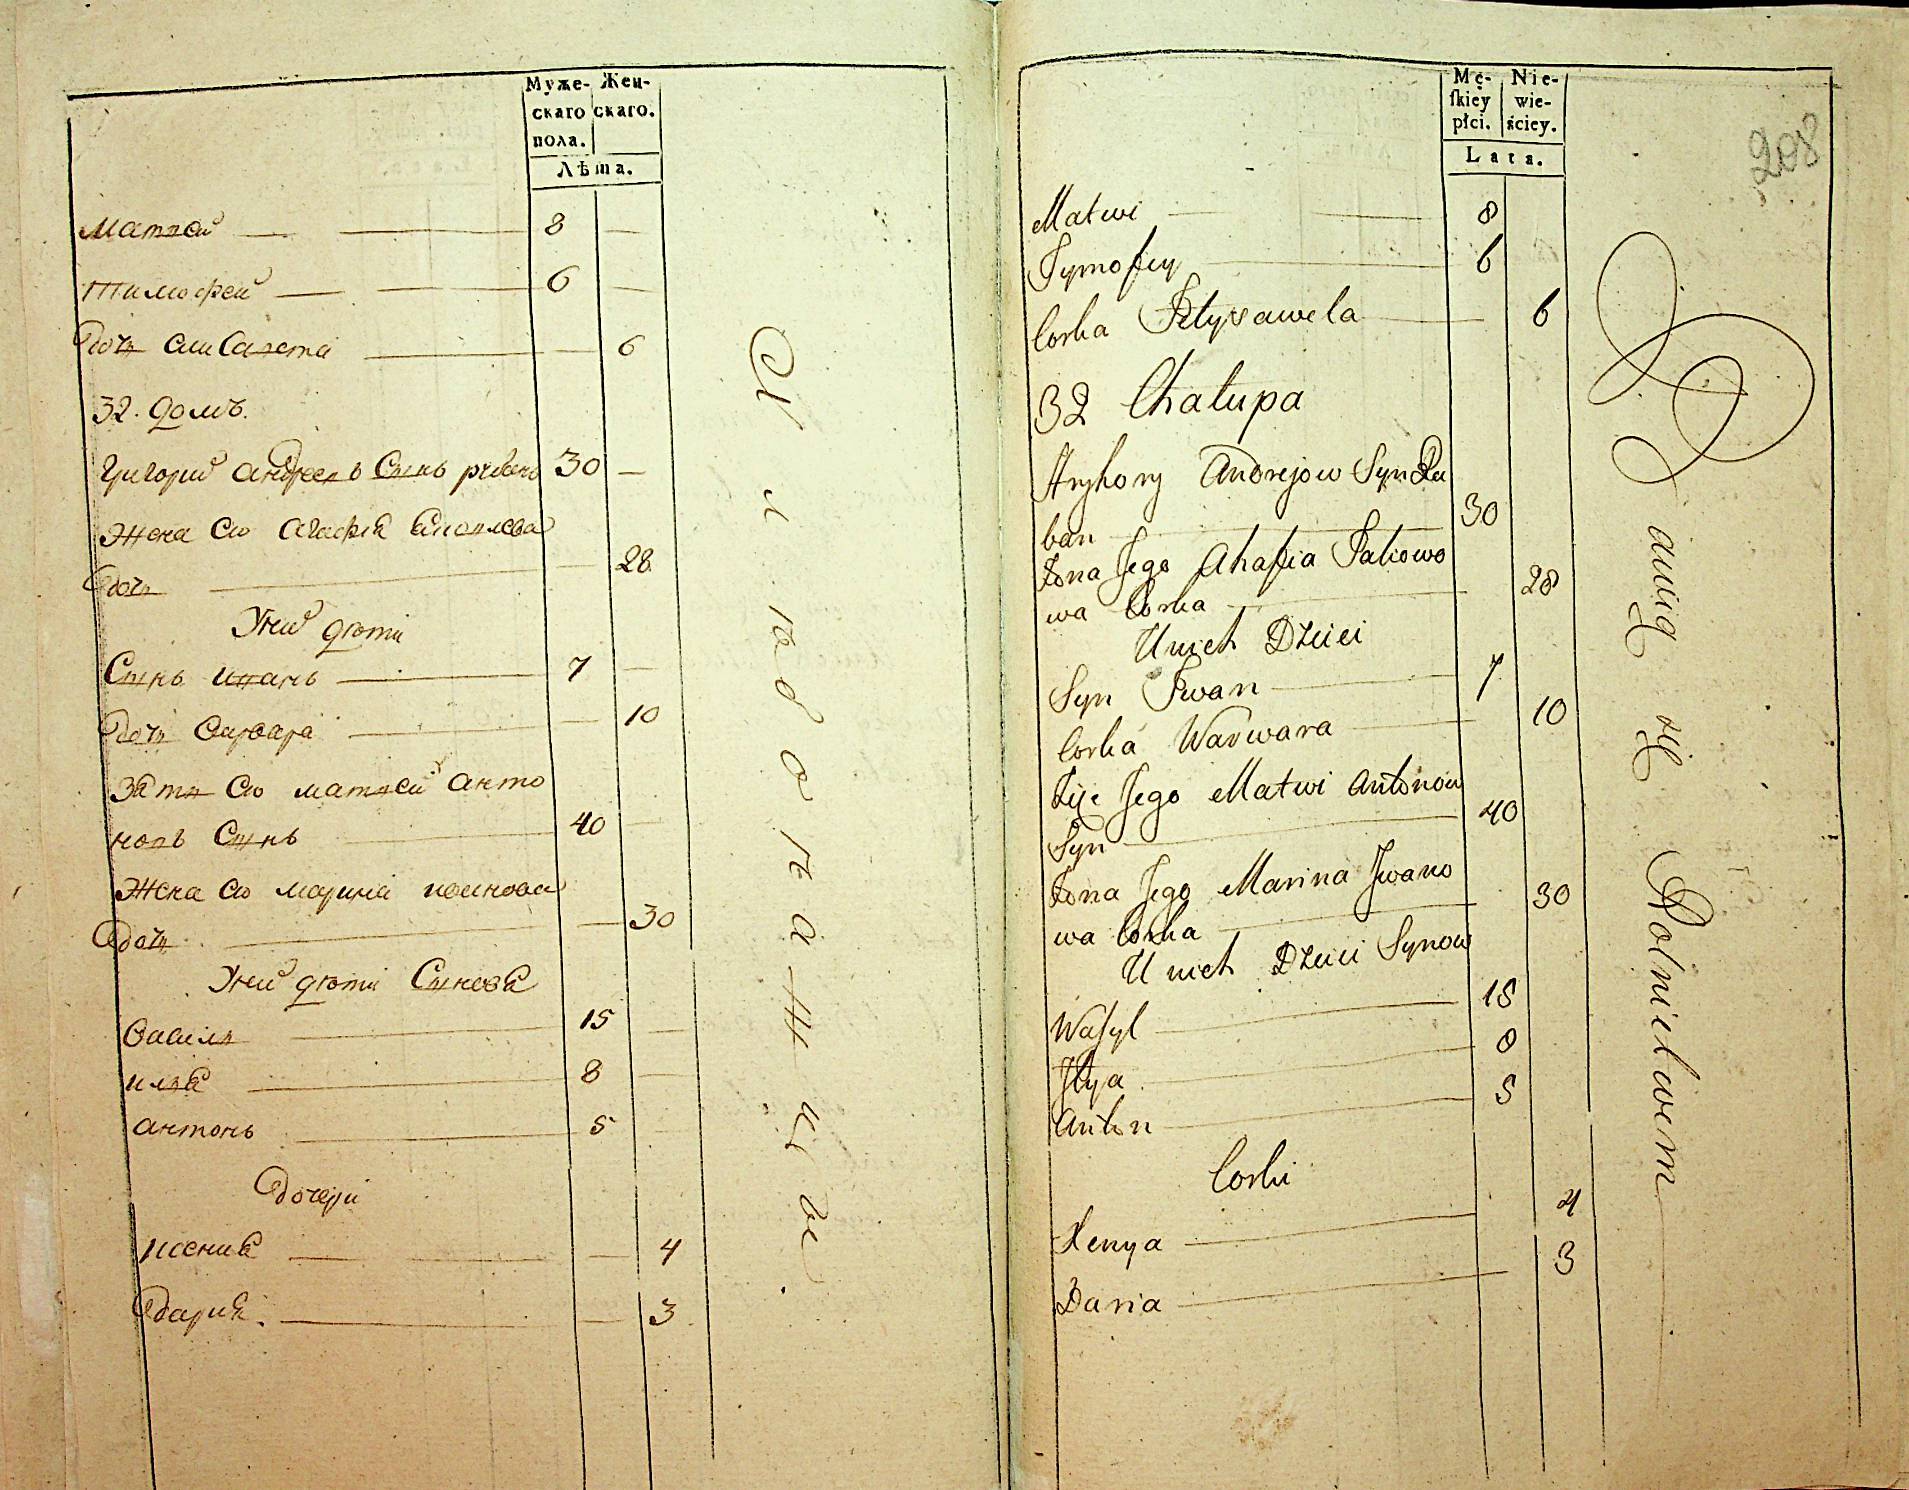 Муже-
скаго
пола.
Жен-
скаго.
Лѣта.
Матвей 8
Тимофей 6
Дочь Елисавета 6
32. Домъ.
Григорий Андреевъ Сынъ 30
Жена Его Агафия
Дочь 28
У нихъ дѣти
Сынъ Иванъ 7
Дочь Варвара 10
Зять Его Матвей Анто
новъ Сынъ 40
Жена Его Марина Иванова
Дочь 30
У нихъ дѣти Синова
Василь 15
Илья 8
Антонъ 5
Дочери
Ксения 4
Дария. 3
Mę-
skiey
płci.
Nie-
wie-
ściey.
Lata.
208
Matwi 8
Tymofiy 6
Corka Elyzaweta 6
32 Chałupa
Hryhory Andrejow Syn Ru
ban 30
Żona Jego Ahafia Jakowo
wa Corka 28
U nich Dzieci
Syn Iwan 7
Corka Warwara 10
Zięć Jego Matwi Antonow
Syn 40
Żona Jego Marina Iwano
wa Corka 30
U nich Dzieci Synow
Wasyl 15
Ilya 8
Anton 5
Corki
Xenya 4
Daria 3
bawią się Rolnictwem